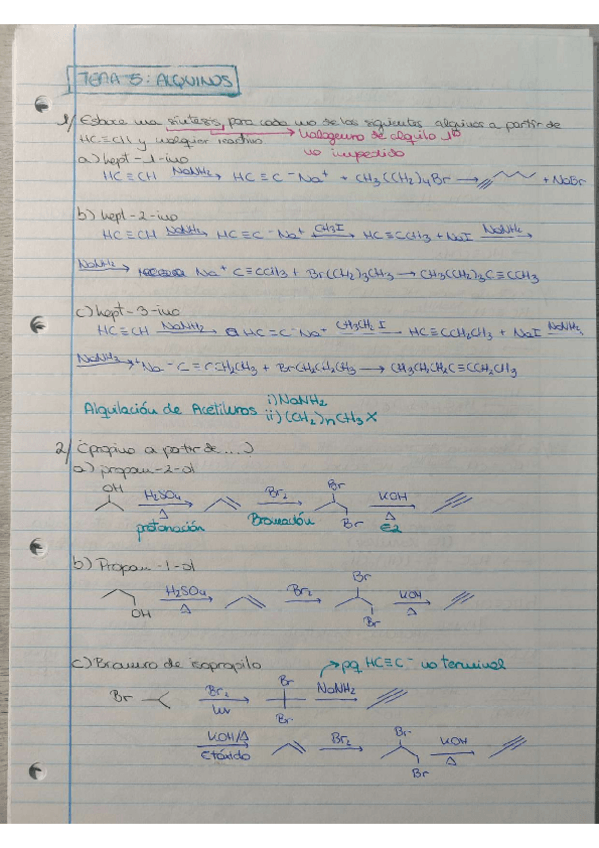 TEMA 5: ALQUINOS
1/ Esboce una síntesis, para cada uno de los siguientes alquinos a partir de
HC≡CH y cualquier reactivo → halogenuro de alquilo 1º
no impedido
a) hept-1-ino
HC≡CH NaNH₂→ HC≡C⁻Na⁺ + CH₃(CH₂)₄Br → + NaBr
b) hept-2-ino
HC≡CH NaNH₂→ HC≡C⁻Na⁺ CH₃I→ HC≡CCH₃ + NaI NaNH₂→
NaNH₂→ Na⁺ C≡CCH₃ + Br(CH₂)₃CH₃ → CH₃(CH₂)₃C≡CCH₃
c) hept-3-ino
HC≡CH NaNH₂→ HC≡C⁻Na⁺ CH₃CH₂I→ HC≡CCH₂CH₃ + NaI NaNH₂
NaNH₂→ ⁺Na⁻C≡CCH₂CH₃ + BrCH₂CH₂CH₃ → CH₃CH₂CH₂C≡CCH₂CH₃
Alquilación de Acetiluros i) NaNH₂
ii) (CH₂)nCH₃X
2/ ¿propino a partir de ....?
a) propan-2-ol
OH H₂SO₄ Δ → Br₂ → Br Br KOH Δ →
protonación Bromación E2
b) Propan-1-ol
OH H₂SO₄ Δ → Br₂ → Br Br KOH Δ →
c) Bromuro de isopropilo → pq HC≡C⁻ no terminal
Br Br₂ uv → Br Br NaNH₂ →
KOH/Δ Etóxido → Br₂ → Br Br KOH Δ →